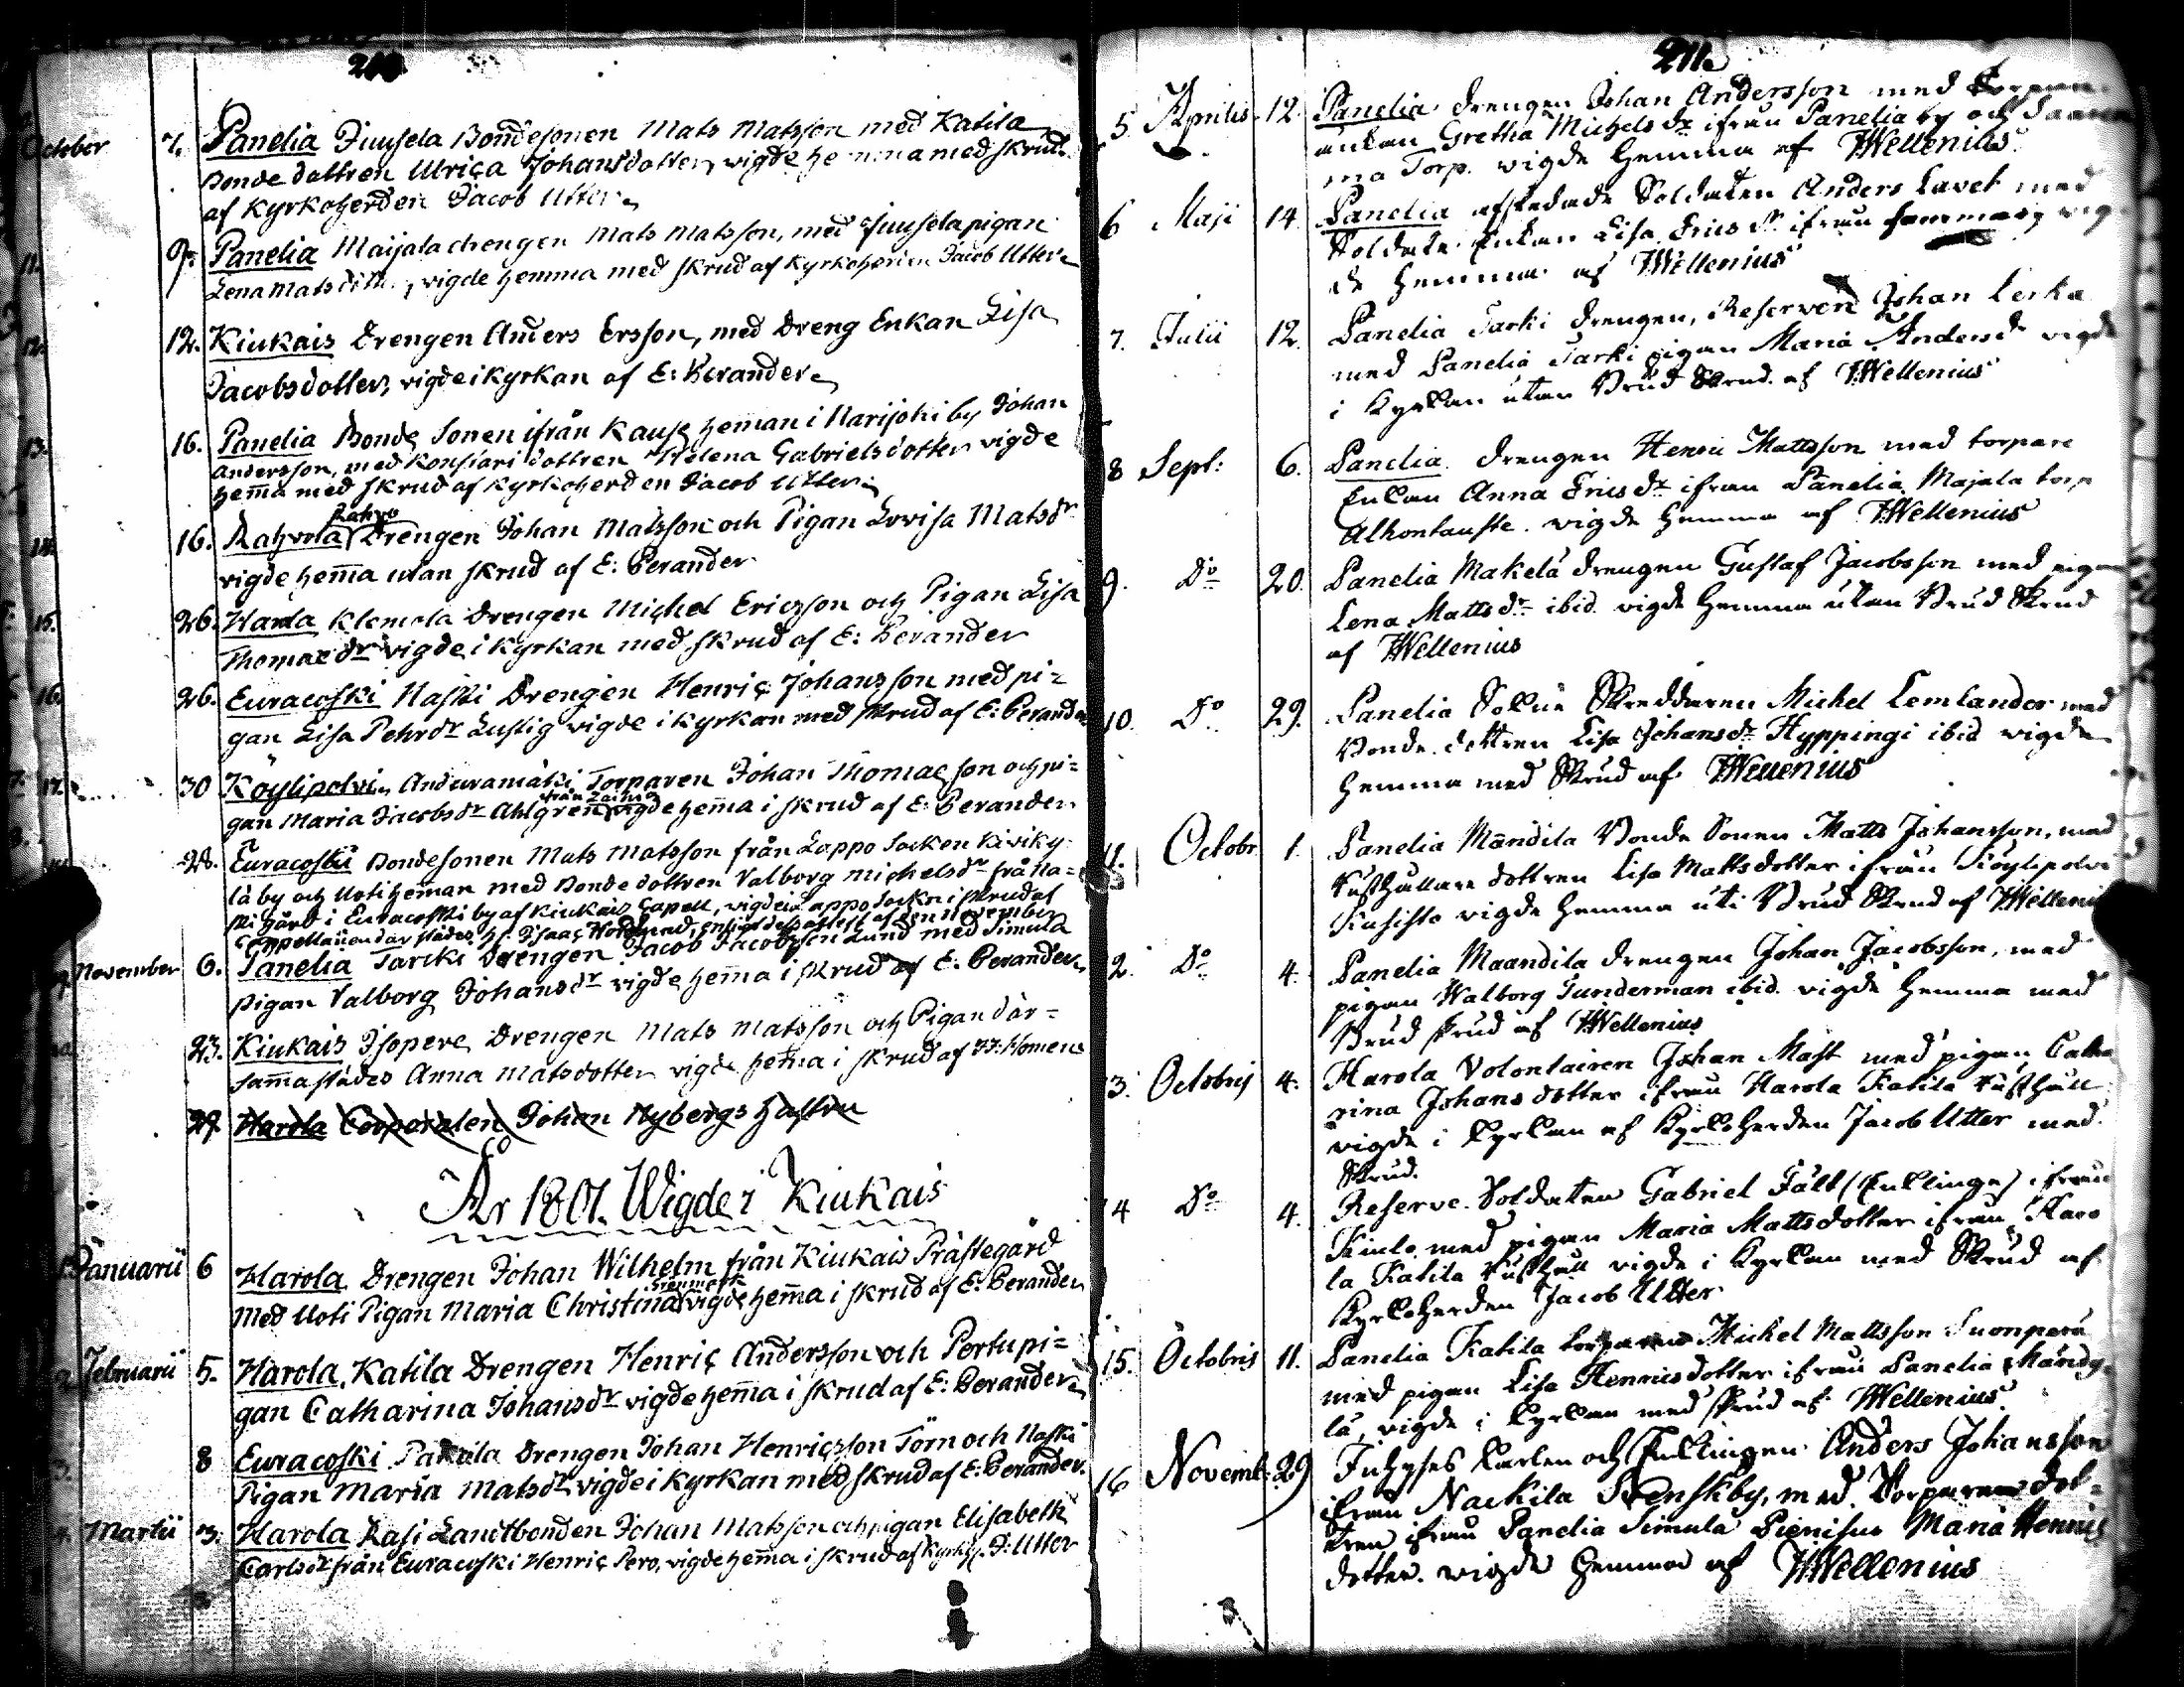 October 7. Panelia Juusela Bondesonen Mats Matsson med Katila
Bonde dottren Ulrica Johansdotter, vigde hemma med skrud
af Kyrkoherden Jacob Utter
11. 9. Panelia Maijala drengen Mats Matsson, med Juuselapigan
Lena Matsdotter, vigde hemma med skrud af Kyrkoherden Jacob Utter
12. 12. Kiukais Drengen Anders Ersson, med Dreng Enkan Lisa
Jacobsdotter, vigde i Kyrkan af E: Berander
13. 16. Panelia Bonde Sonen ifrån Kause heman i Narijoki by Johan
Andersson, med Konsiari dottren Helena Gabrielsdotter vigde
hem̄a med skrud af Kyrkoherden Jacob Utter
Rahvo
14. 16. Rahvola Drengen Johan Matsson och Pigan Lovisa Matsdr
vigde hem̄a utan skrud af E: Berander
15. 26. Harola Klemola Drengen Michel Ericsson och Pigan Lisa
Thomae dr vigde i Kyrkan med skrud af E: Berander
16. 26. Euracoski Naski Drengen Henric Johansson med pi=
gan Lisa Pehrsdr Lustig vigde i kyrkan med skrud af E: Berander
17. 30 Köylipolvi, Anduramäki Torparen Johan Thomae son och pi=
gan Maria Jacobsdr Ahlgren vigde hem̄a i skrud af E: Berander
28. Euracoski Bondesonen Mats Matsson från Lappo Socken Kiviky
lä by och Uoti heman med Bonde dottren Valborg Michelsdr från Na=
ski gård i Euracoski by af Kiukais Capell, vigde i Lappo Sockn i skrud af
Capellanen där städes Hr Isaac Nordlund, enligt dess attest af den 11 November
November 6. Panelia Tarcki Drengen Jacob Jacobsson Lund med Simula
pigan Valborg Johansdr vigde hem̄a i skrud af E: Berander
23. Kiukais Isopere Drengen Mats Matsson och Pigan där=
sam̄astädes Anna Matsdotter vigde hem̄a i skrud af
29 Harola Corporalen Johan Nybergs
År 1801. Wigde i Kiukais
1. Januarii 6 Harola Drengen Johan Wilhelm från Kiukais Prästegård
med Uoti Pigan Maria Christina vigde hem̄a i skrud af E: Berander
2. Februarii 5. Harola Katila Drengen Henric Andersson och Pertu pi=
gan Catharina Johansdr vigde hem̄a i skrud af E: Berander
3. 8 Euracoski Drengen Johan Henricsson Törn och Naski
Pigan Maria Matsdr vigde i kyrkan med skrud af E: Berander.
4. Martii 3. Harola Rasi Landtbonden Johan Matsson och pigan Elisabeth
Carlsdr från Euracoski Henric Pero, vigde hem̄a i skrud af Kyrkh. J: Utter
211.
5. Aprilis 12. Panelia drengen Johan Andersson med
enkan Gretha Michelsdr ifrån Panelia by och
ma Torp. vigde hemma af Wellenius.
6 Maji 14 Panelia afskedade Soldaten Anders Lavet med
Soldate Enkan Lisa Ericsdr ifrån sammaby vig
de hemma af Wellenius
7. Julii 12. Panelia Tarki drengen, Reserven Johan Lerka
med Panelia Tarki pigan Maria Andersdr vigde
i Kyrkan utan Brud Skrud af Wellenius
8 Sept: 6. Panelia drengen Henric Mattsson med torpare
Enkan Anna Ericsdr ifrån Panelia Majala torp
Alhontauste vigde hemma af Wellenius
9. Do 20. Panelia Makelä drengen Gustaf Jacobsson med pigan
Lena Mattsdr ibid. vigde hemma utan Brud Skrud
af Wellenius
10. Do 29. Panelia Skreddaren Michel Lemlander med
Bonde dottren Lisa Johansdr Hyppingi ibid vigde
hemma med Skrud af Wellenius
11. Octobr 1. Panelia Mändila Bonde Sonen Matts Johansson, med
Rusthållare dottren Lisa Mattsdotter ifrån Köylipolvi
vigde hemma uti Brud Skrud af Wellenius
12. Do 4. Panelia Maandila drengen Johan Jacobsson, med
pigan Walborg Sunderman ibid. vigde hemma med
Brud skrud af Wellenius
13. Octobris 4. Harola Volontairen Johan Mast med pigan Catha
rina Johansdotter ifrån Harola Katila Rusthåll
vigde i Kyrkan af Kyrkoherden Jacob Utter med
Skrud.
14 Do 4. Reserve Soldaten Gabriel Fält (Enklinge) ifrån
med pigan Maria Mattsdotter ifrån Haro
la Katila Rusthåll vigde i Kyrkan med Skrud af
Kyrkoherden Jacob Utter
15. Octobris 11. Panelia Katila torparen Michel Mattsson Suonperä
med pigan Lisa Henricsdotter ifrån Panelia Mändi
lä, vigde i Kyrkan med skrud af Wellenius.
16 Novemb: 29 Inhyses karlen och Enklingen Anders Johansson
ifrån Nackila Svenskby, med Torparens dot=
tren ifrån Panelia Simula Maria Henrics
dotter. vigde hemma af Wellenius